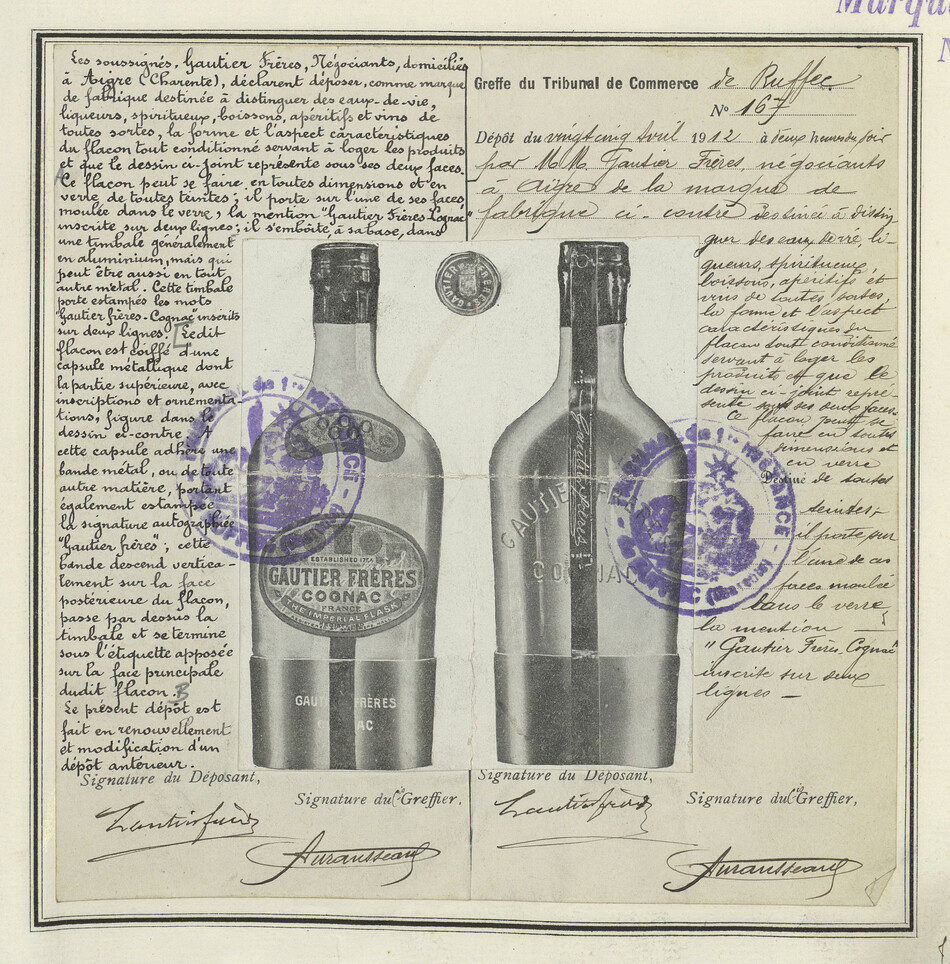 Marqu
N
Les soussignés, Gautier Frères, Négociants, domiciliés
à Aigre (Charente), déclarent déposer, comme marque
de fabrique destinée à distinguer des eaux-de-vie,
liqueurs, spiritueux, boissons, apéritifs et vins de
toutes sortes, la forme et l'aspect caractéristiques
du flacon tout conditionné servant à loger les produits
et que le dessin ci-joint représente sous ses deux faces.
Ce flacon peut se faire en toutes dimensions et en
verre de toutes teintes; il porte sur l'une de ses faces,
moulée dans le verre, la mention "Gautier Frères Cognac"
inscrite sur deux lignes; il s'emboîte, à sa base, dans
une timbale généralement
en aluminium, mais qui
peut être aussi en tout
autre métal. Cette timbale
porte estampés les mots
"Gautier frères-Cognac" inscrits
sur deux lignes. Ledit
flacon est coiffé d'une
capsule métallique dont
la partie supérieure, avec
inscriptions et ornementa-
tions, figure dans le
dessin ci-contre. A
cette capsule adhère une
bande métal, ou de toute
autre matière, portant
également estampée
la signature autographiée
"Gautier frères"; cette
bande descend vertica-
lement sur la face
postérieure du flacon,
passe par dessus la
timbale et se termine
sous l'étiquette apposée
sur la face principale
dudit flacon. B
Le présent dépôt est
fait en renouvellement
et modification d'un
dépôt antérieur.
Signature du Déposant,
Signature du Greffier,
Gautier frères
Greffe du Tribunal de Commerce de Ruffec
N° 167
Dépôt du vingt cinq Avril 1912 à deux heures du soir
par MM Gautier Frères, négociants
à Aigre de la marque de
fabrique ci-contre destinée à distin
guer des eaux de vie, li-
queurs, spiritueux,
boissons, apéritifs et
vins de toutes sortes,
la forme et l'aspect
caractéristiques du
flacon tout conditionné
servant à loger les
produits et que le
dessin ci-joint repré-
sente sous ses deux faces.
Ce flacon peut se
faire en toutes
dimensions et
en verre
Destiné de toutes
teintes;
il porte sur
l'une de ses
faces moulée
dans le verre
la mention
"Gautier Frères, Cognac"
inscrite sur deux
lignes —
Signature du Déposant,
Signature du Greffier,
Gautier frères
GAUTIER FRÈRES
ESTABLISHED 1755
GAUTIER FRÈRES
COGNAC
FRANCE
THE IMPERIAL FLASK
GAUT FRÈRES
AC
Gautier frères
GAUTIER FRÈRES
COGNAC
TRIBUNAL de 1re INSTANCE
RUFFEC (Charente)
TRIBUNAL de 1re INSTANCE
RUFFEC (Charente)